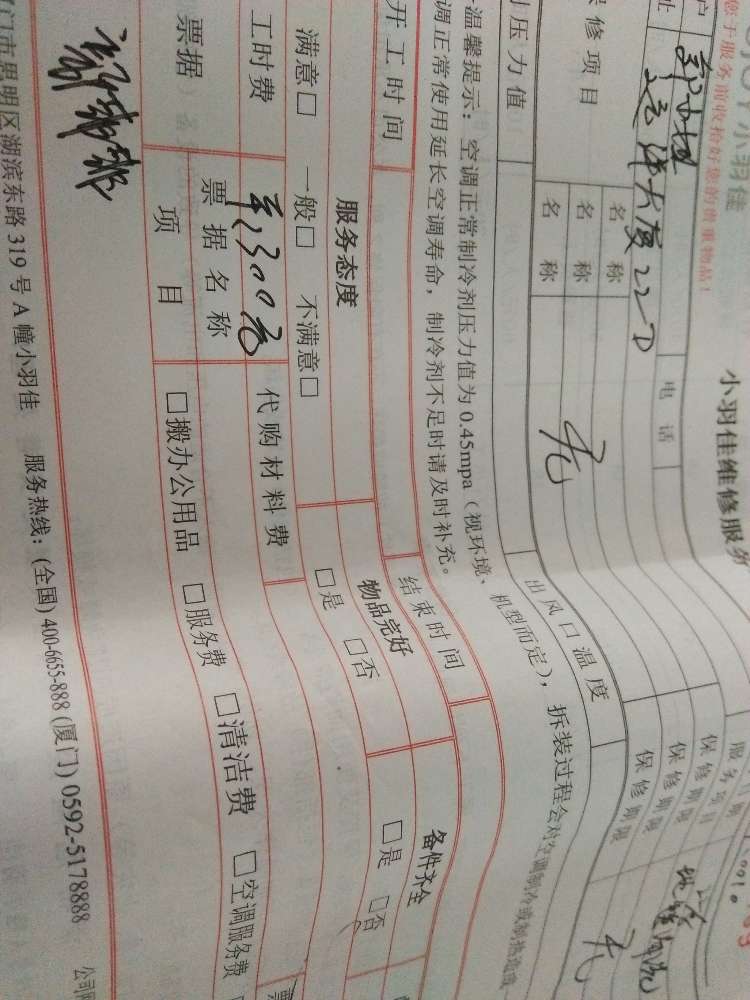 小羽佳
小羽佳维修服务
您于服务前收拾好您的贵重物品！
户
电 话
址
远洋大厦22D
服务项目
保修项目
名 称
保修期限
名 称
保修期限
名 称
无
保修期限
无
压力值
出风口温度
温馨提示：空调正常制冷剂压力值为0.45mpa（视环境、机型而定），拆装过程会对空调制冷或制热造成
调正常使用延长空调寿命，制冷剂不足时请及时补充。
开工时间
结束时间
服务态度
物品完好
备件齐全
满意□ 一般□ 不满意□
□是 □否
□是 □否
工时费
代购材料费
票据
票据名称
项 目
□搬办公用品 □服务费 □清洁费 □空调服务费
门市思明区湖滨东路 319 号 A 幢小羽佳 服务热线：(全国) 400-6655-888 (厦门) 0592-5178888